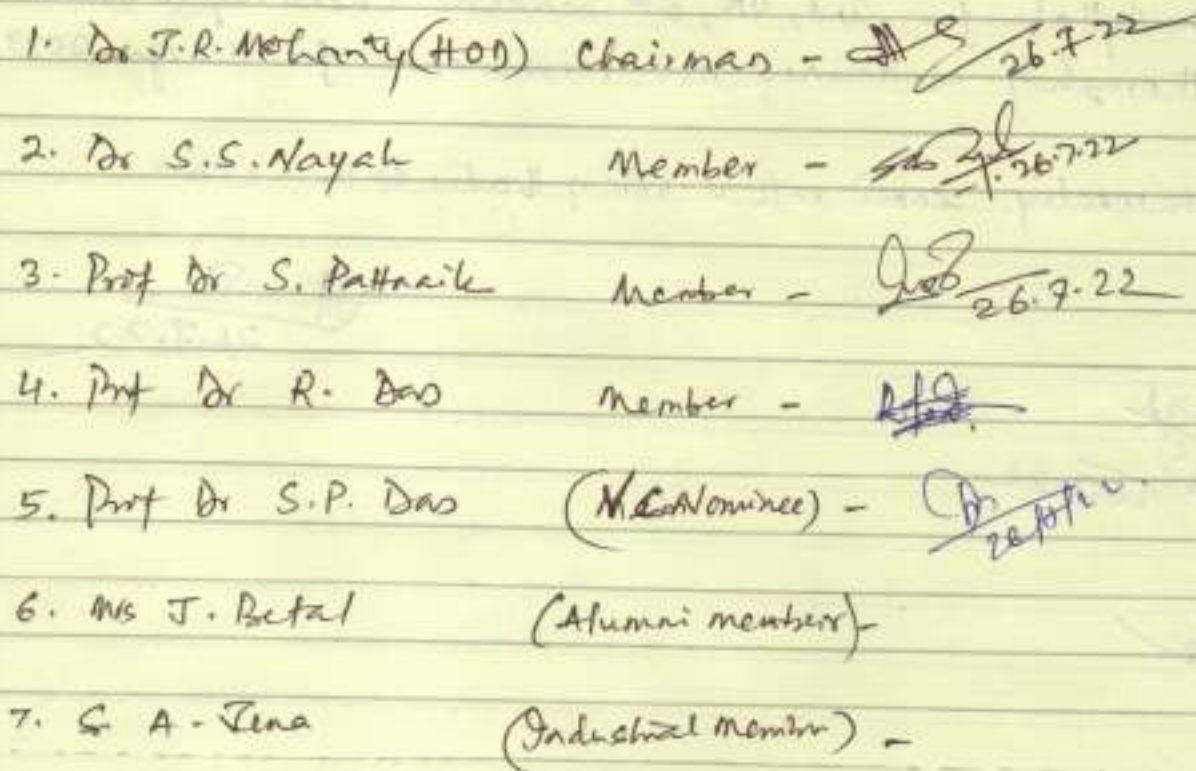 1. Dr J.R. Mohanty (HOD) Chairman - 26.7.22
2. Dr S.S. Nayak Member - 26.7.22
3. Prof Dr S. Pattnaik Member - 26.7.22
4. Prof Dr R. Das Member -
5. Prof Dr S.P. Das (V.C. Nominee) -
6. Ms J. Betal (Alumni member) -
7. A. Jena (Industrial Member) -